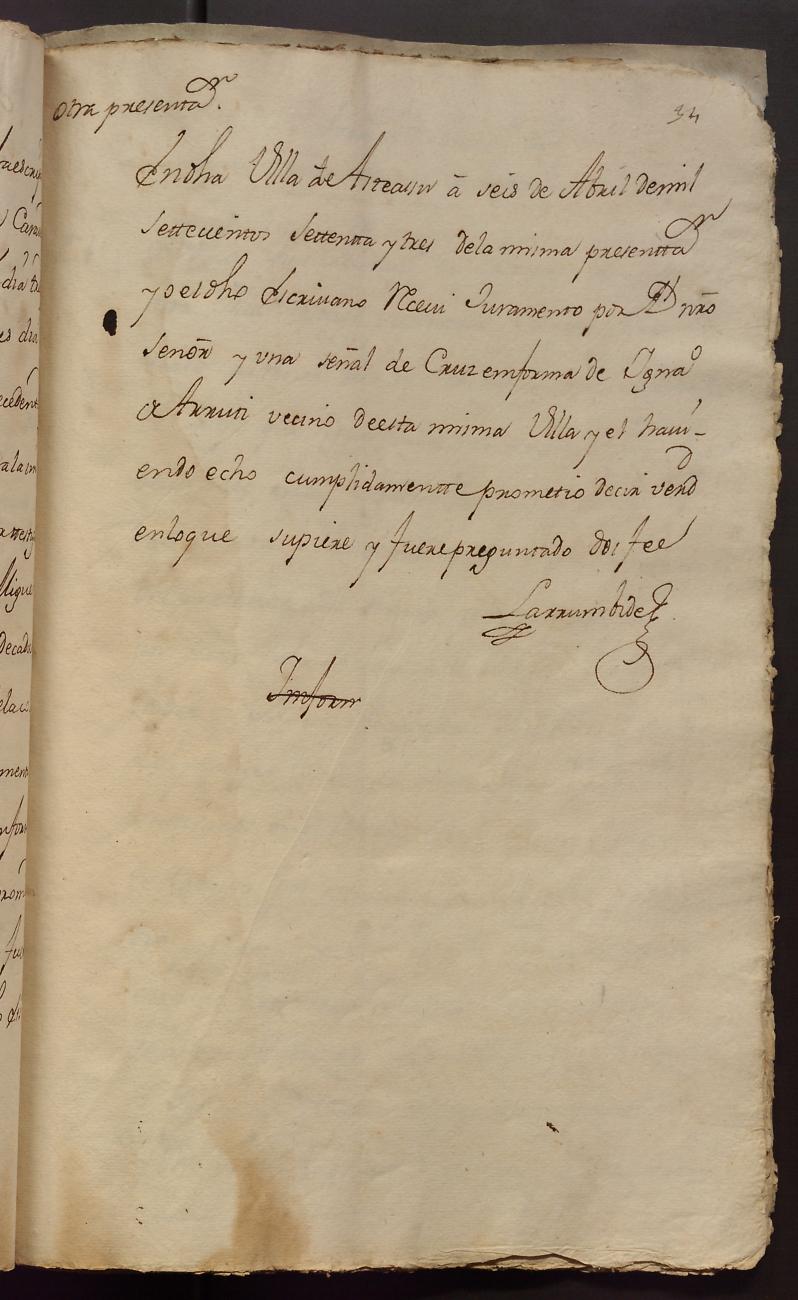 otra presentaon.
34
En dha Villa de Asteasu â seis de Abril de mil
settecientos settenta y tres dela misma presenttaon
yo el dho Escrivano Rceui Juramento por Ds nrô
señor y vna señal de Cruz en forma de Ygnao
de Arruti vecino de esta misma Villa y el haui-
endo echo cumplidamentte prometio decir verdd
en loque supiere y fuere preguntado doi fee
Larrumbide
Inform